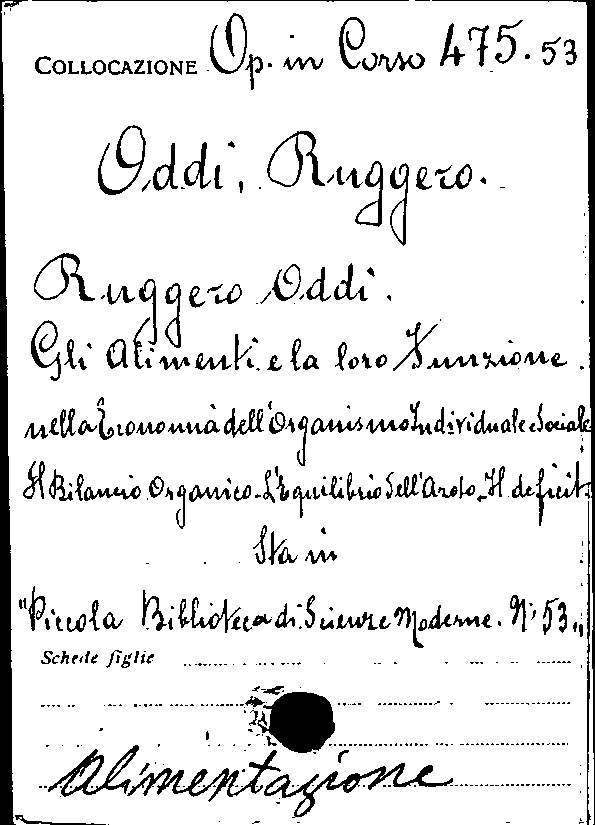 COLLOCAZIONE Op. in Corso 475.53
Oddi, Ruggero.
Ruggero Oddi.
Gli Alimenti e la loro Funzione.
nella Economia dell'Organismo Individuale e Sociale
Il Bilancio Organico - L'Equilibrio dell'Azoto - Il deficit
Sta in
"Piccola Biblioteca di Scienze Moderne. N° 53"
Schede figlie
Alimentazione